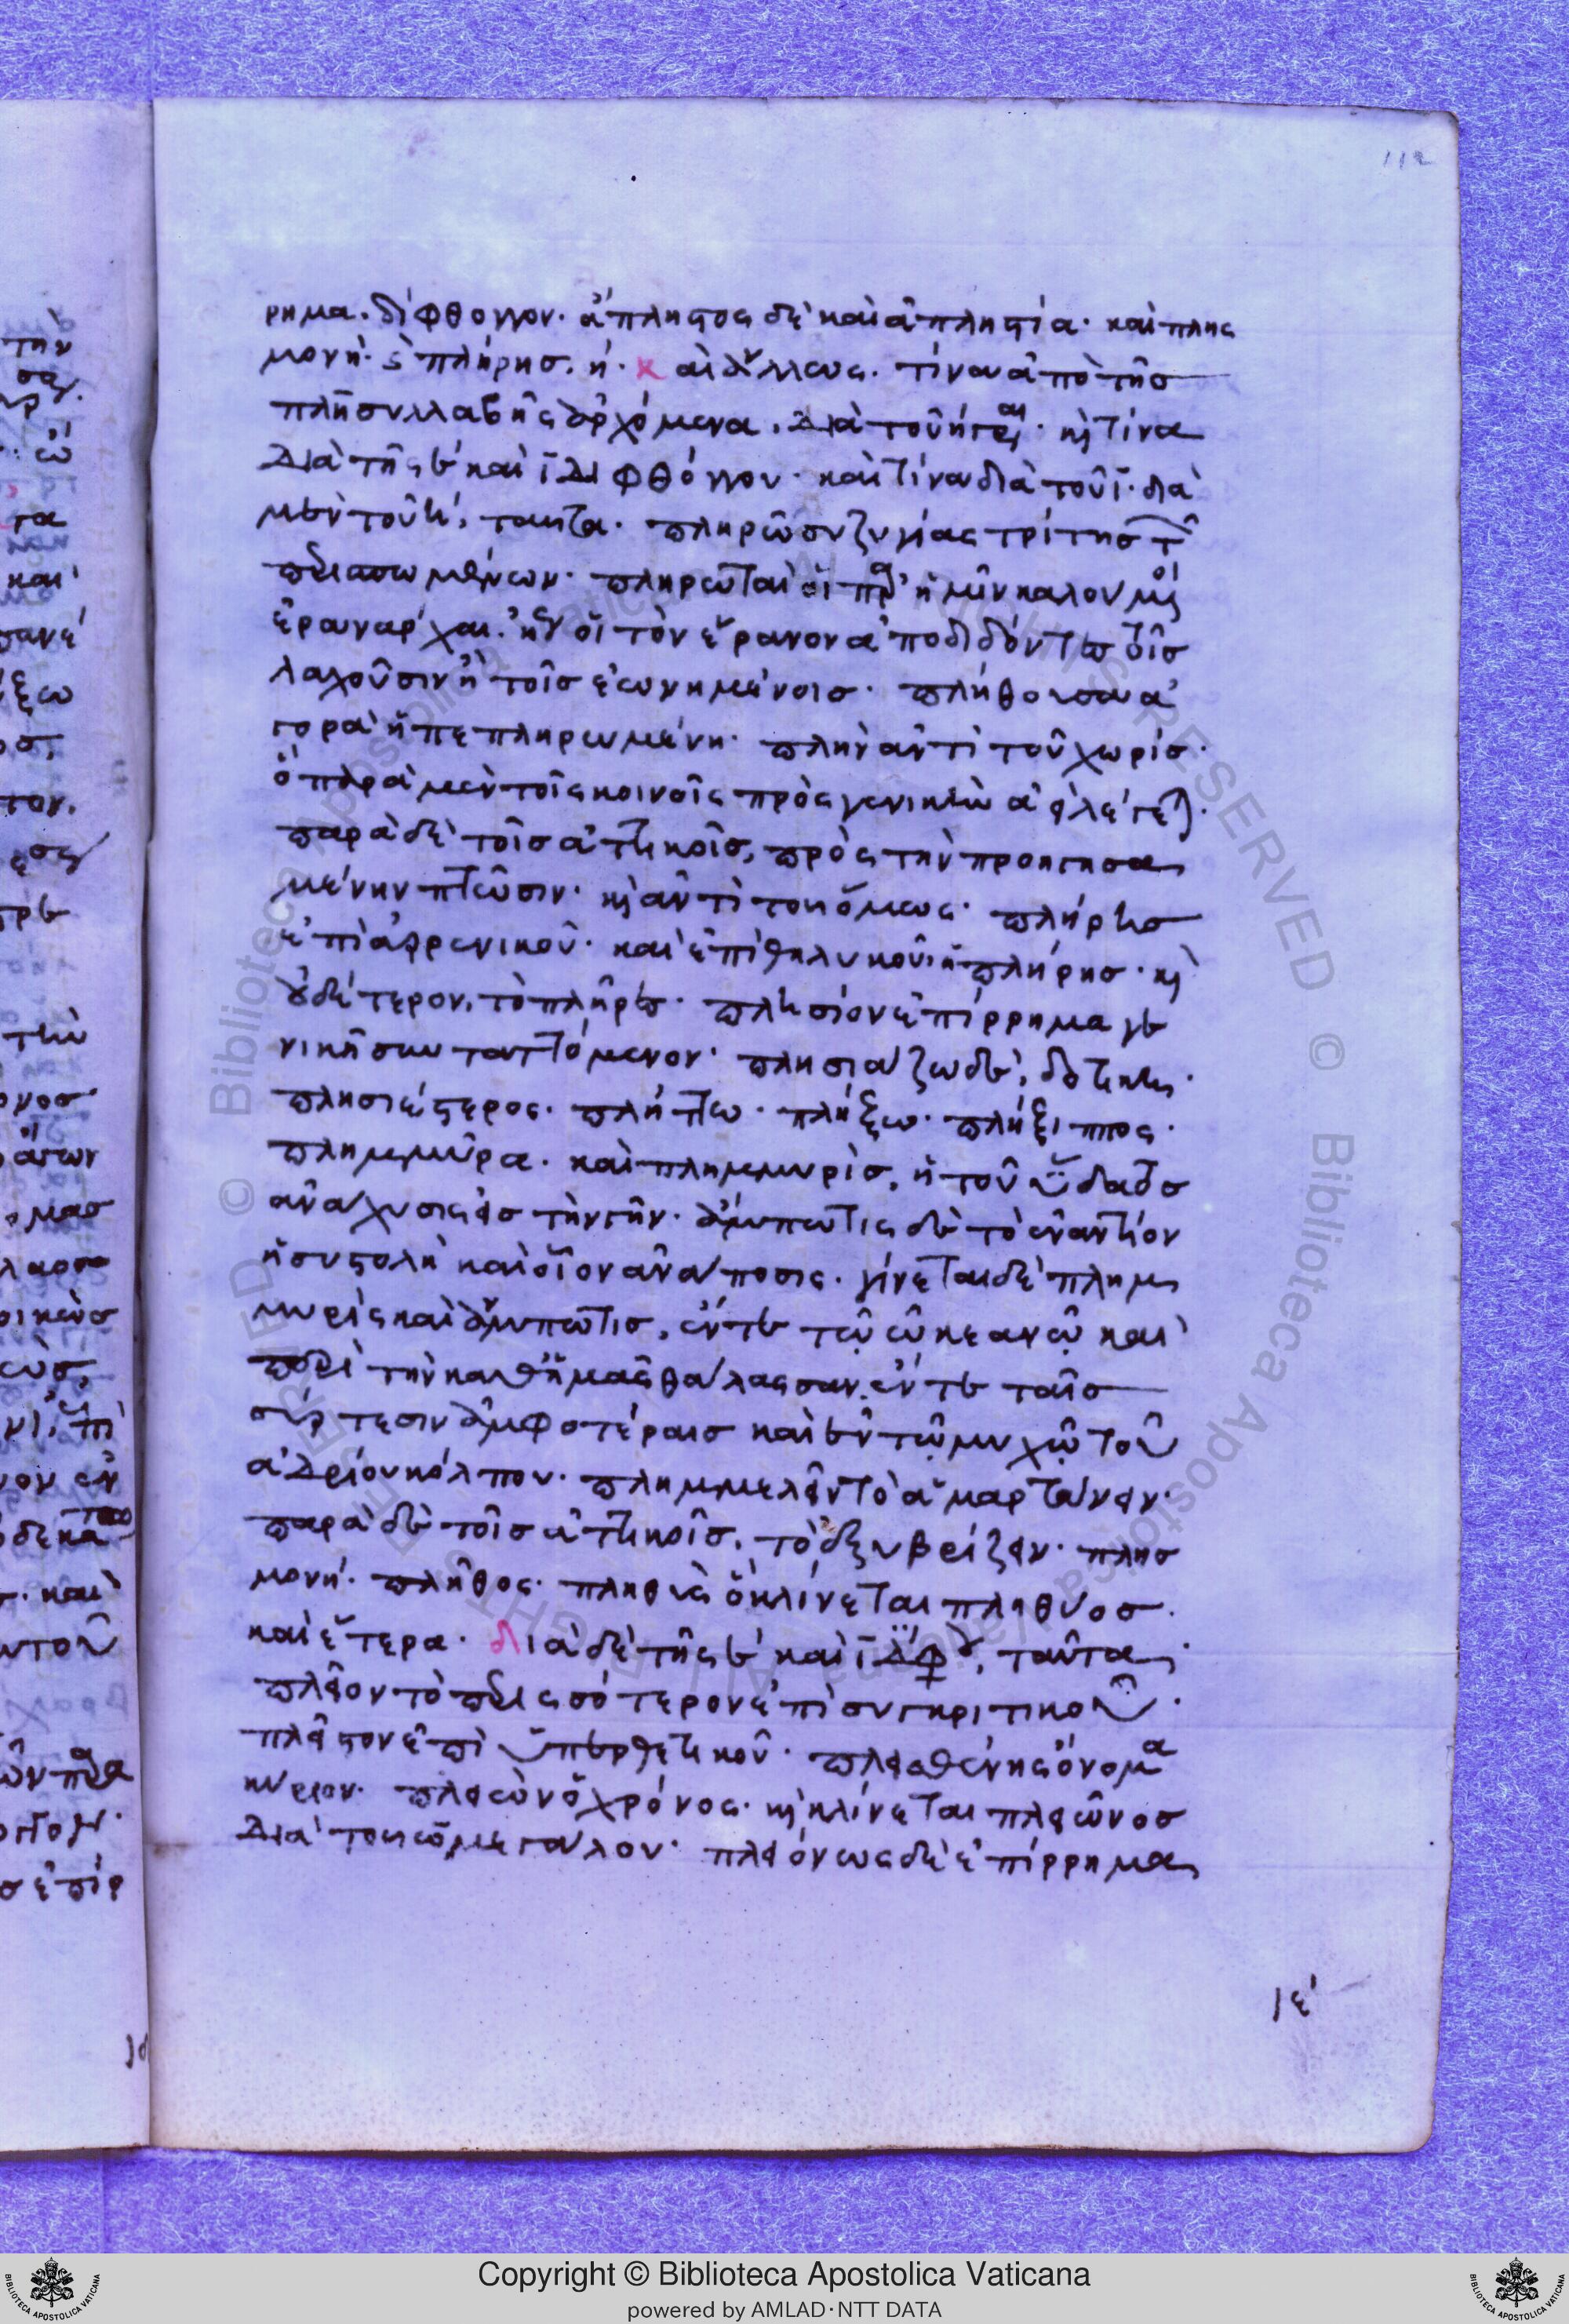 112
ρημα. δίφθογγον. ἄπληστος δὲ καὶ ἀπληστία. καὶ πλησ
μονή. πλήρης. ἡ. καὶ ἄλλως. τίνα ἀπὸ τῆς
πλη συλλαβῆς ἀρχόμενα, διὰ τοῦ η γράφεται. καὶ τίνα
διὰ τῆς ει καὶ ι διφθόγγου. καὶ τίνα διὰ τοῦ ι. διὰ
μὲν τοῦ η, ταῦτα. πληρῶ συζυγίας τρίτης τῶν
περισπωμένων. πληρωταὶ οἱ παρ' ἡμῖν καλούμενοι
ἐρανάρχαι. ἤγουν οἱ τὸν ἔρανον ἀποδιδόντες τοῖς
λαχοῦσιν ἢ τοῖς ἐωνημένοις. πλήθουσα ἀ
γορά ἡ πεπληρωμένη. πλὴν ἀντὶ τοῦ χωρίς.
ὃ παρὰ μὲν τοῖς κοινοῖς πρὸς γενικὴν ἀεὶ λέγεται.
παρὰ δὲ τοῖς ἀττικοῖς, πρὸς τὴν προηγησα
μένην πτῶσιν. καὶ ἀντὶ τοῦ ὅμως. πλήρης
ἐπὶ ἀρρενικοῦ. καὶ ἐπὶ θηλυκοῦ ἡ πλήρης. καὶ
οὐδέτερον, τὸ πλῆρες. πλησίον ἐπίρρημα γε
νικῇ συνταττόμενον. πλησιάζω δὲ, δοτικῇ.
πλησιέστερος. πλήττω. πλήξω. πλήξιππος.
πλημμύρα. καὶ πλημμυρὶς, ἡ τοῦ ὕδατος
ἀνάχυσις εἰς τὴν γῆν. ἄμπωτις δὲ τὸ ἐναντίον
ἡ συστολὴ καὶ οἷον ἀνάποσις. γίνεται δὲ πλημ
μυρὶς καὶ ἄμπωτις, ἔν τε τῷ ὠκεανῷ καὶ
περὶ τὴν καθ' ἡμᾶς θάλασσαν. ἔν τε ταῖς
σύρτεσιν ἀμφοτέραις καὶ ἐν τῷ μυχῷ τοῦ
ἀδρίου κόλπου. πλημμελεῖν τὸ ἁμαρτάνειν.
παρὰ δὲ τοῖς ἀττικοῖς, τὸ ἐξυβρίζειν. πλησ
μονή. πλῆθος. πληθὺς ὃ κλίνεται πληθύος.
καὶ ἕτερα. διὰ δὲ τῆς ει καὶ ι διφθόγγου, ταῦτα,
πλεῖον τὸ περισσότερον ἐπὶ συγκριτικοῦ.
πλεῖστον ἐπὶ ὑπερθετικοῦ. πλεισθένης ὄνομα
κύριον. πλειὼν ὁ χρόνος. καὶ κλίνεται πλειῶνος
διὰ τοῦ ω μεγάλου. πλειόνως δὲ ἐπίρρημα,
ιε'
Copyright © Biblioteca Apostolica Vaticana
powered by AMLAD·NTT DATA